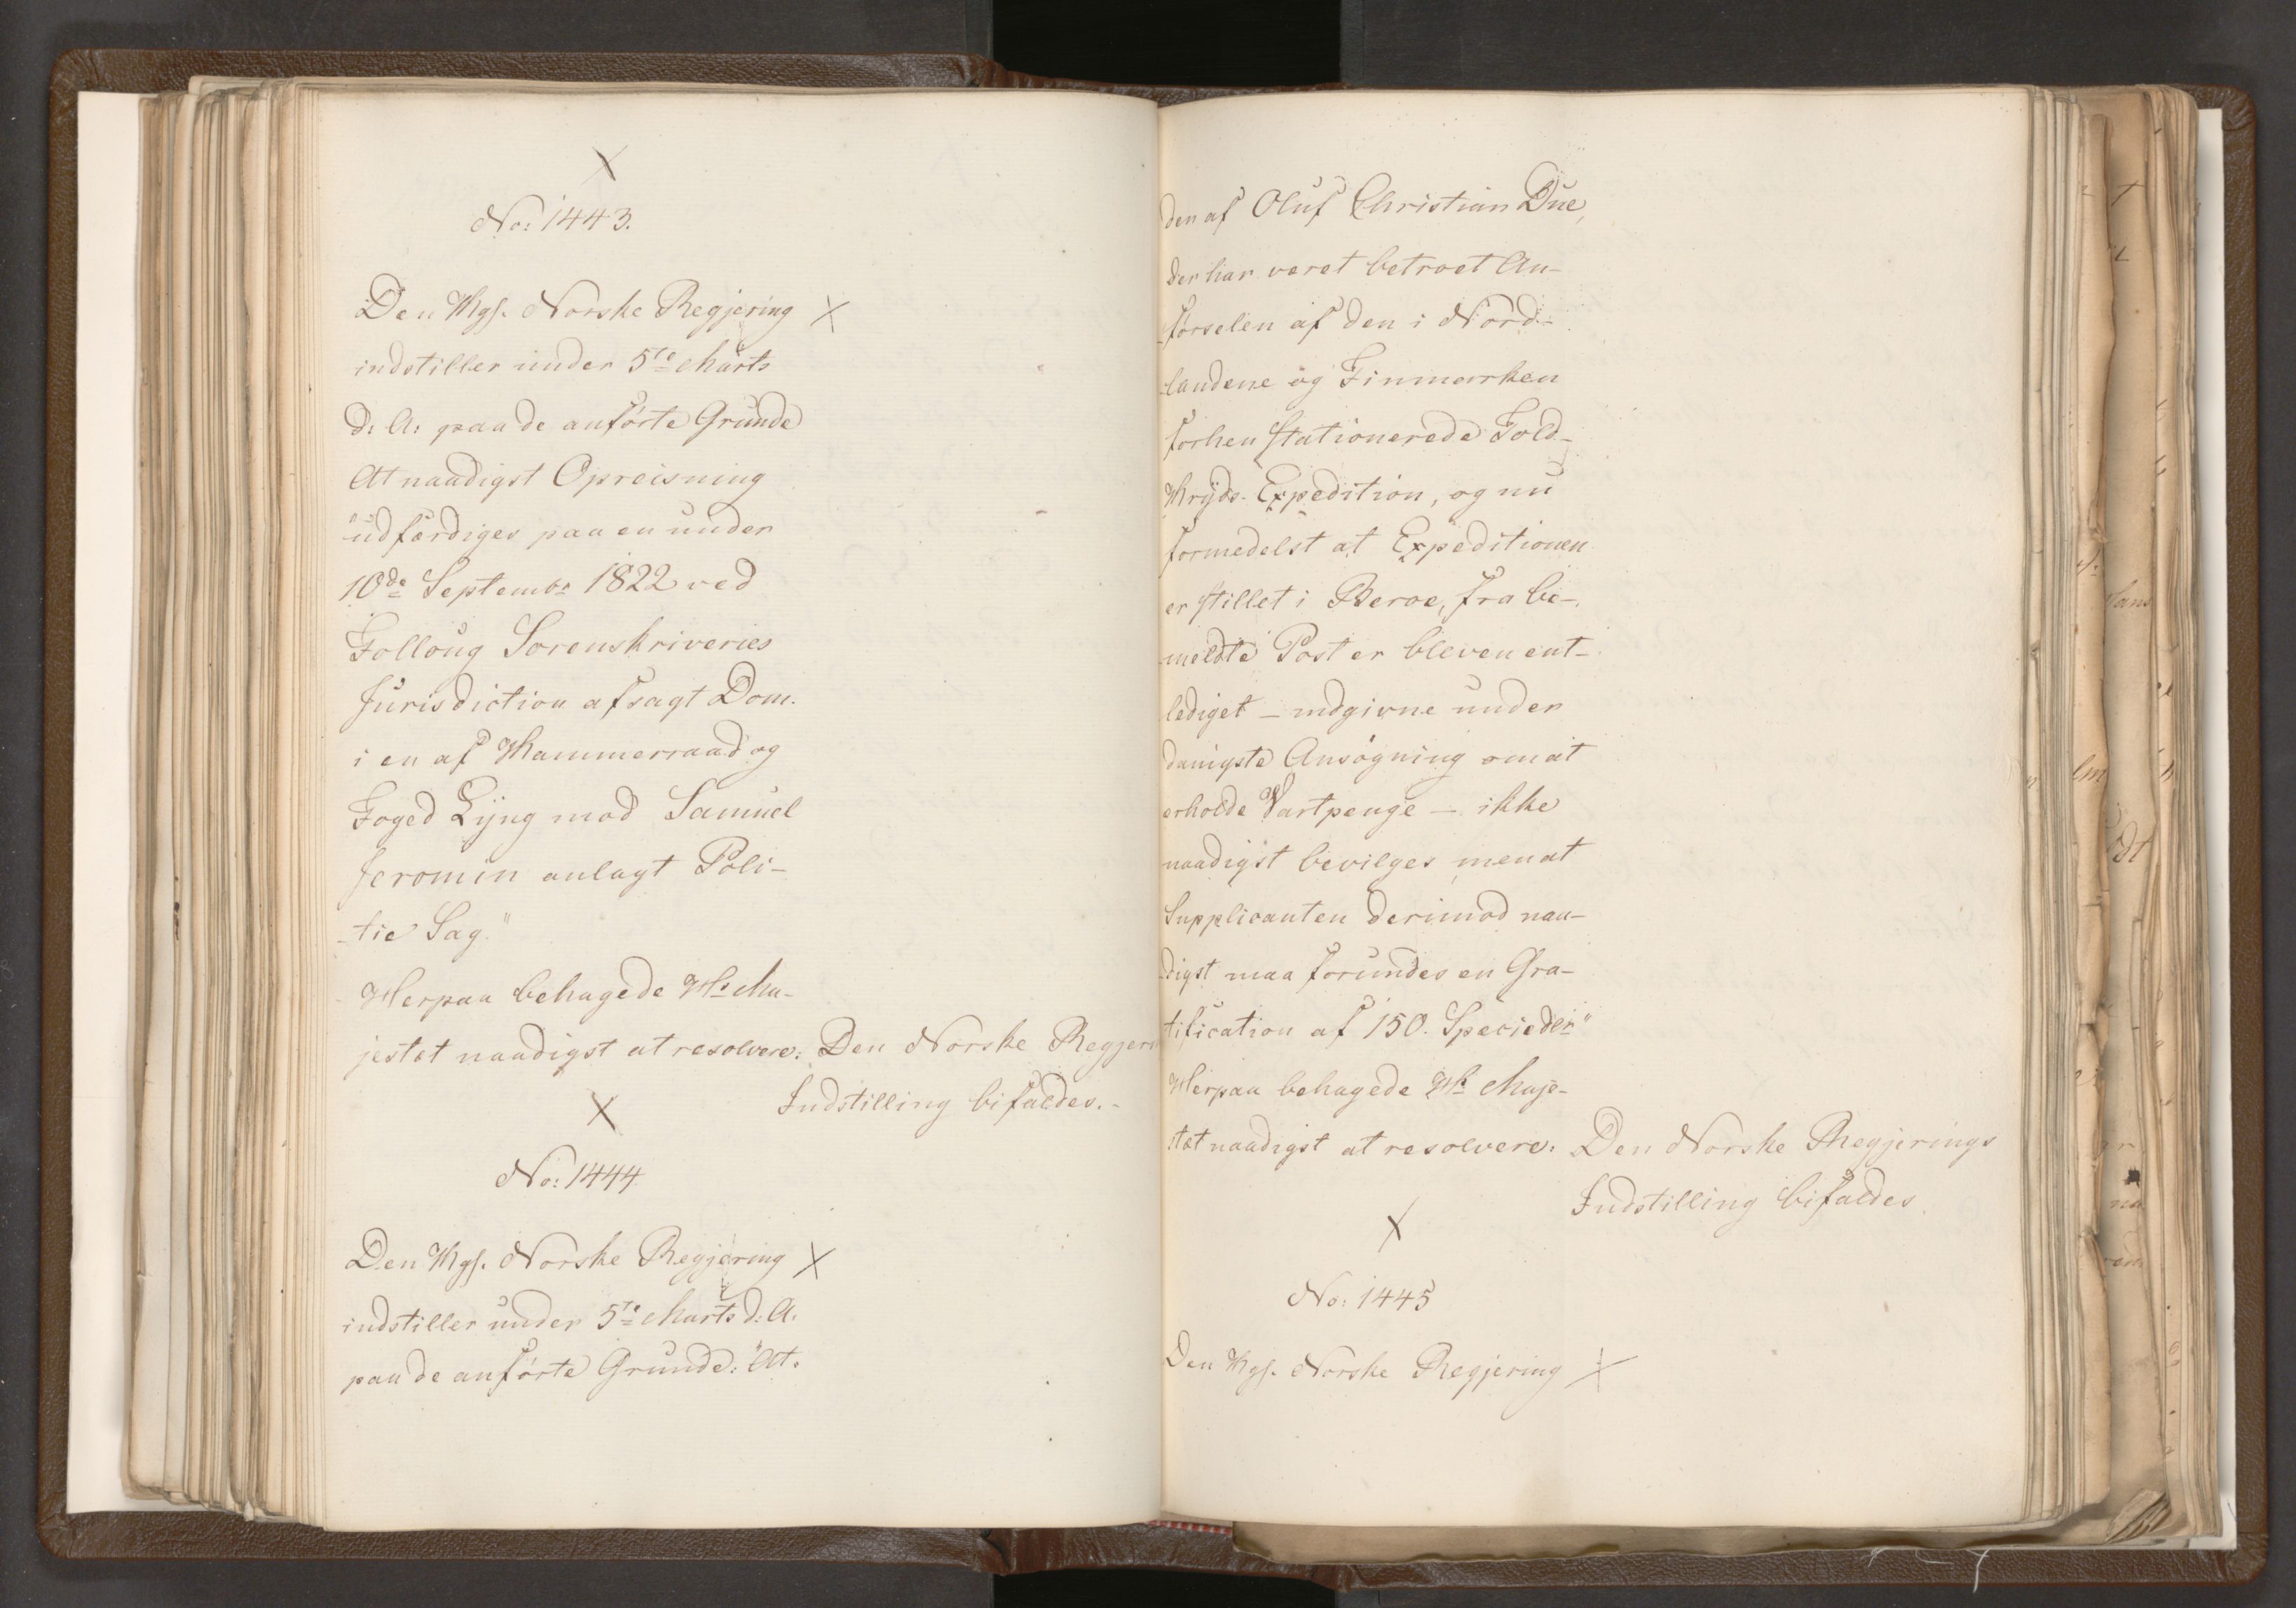 X
No: 1443.
Den Kgs. Norske Regjering X
indstiller under 5te Marts
d: A: paa de anførte Grunde
At naadigst Opreisning
udfærdiges paa en under
10de Septembr 1822 ved
Folloug Sorenskriveries
Jurisdiction afsagt Dom.
i en af Kammerraad og
Foged Lÿng mod Samuel
Jeromin anlagt Poli-
-tie Sag."
Herpaa behagede Hs Ma-
jestæt naadigst at resolvere: Den Norske Regjeri
Indstilling bifaldes.-
X
No: 1444
Den Kgs. Norske Regjering X
indstiller under 5te Marts d: A.
paa de anførte Grunde: "At.
den af Oluf Christian Due,
der har været betroet An-
-førselen af den i Nord-
-landene og Finmarken
forhen stationerede Told-
Krÿds-Expedition, og nu
formedelst at Expeditionen
er stillet i Beroe, fra be-
-meldte Post er bleven ent-
lediget – indgivne under
danigste Ansøgning om at
erholde Vartpenge – ikke
naadigst bevilges, men at
Supplicanten derimod naa-
digst maa forundes en Gra-
tification af 150. Specieder"
Herpaa behagede Hs Maje-
stæt naadigst at resolvere: Den Norske Regjerings
Indstilling bifaldes.
X
No: 1445
Den Kgs. Norske Regjering X